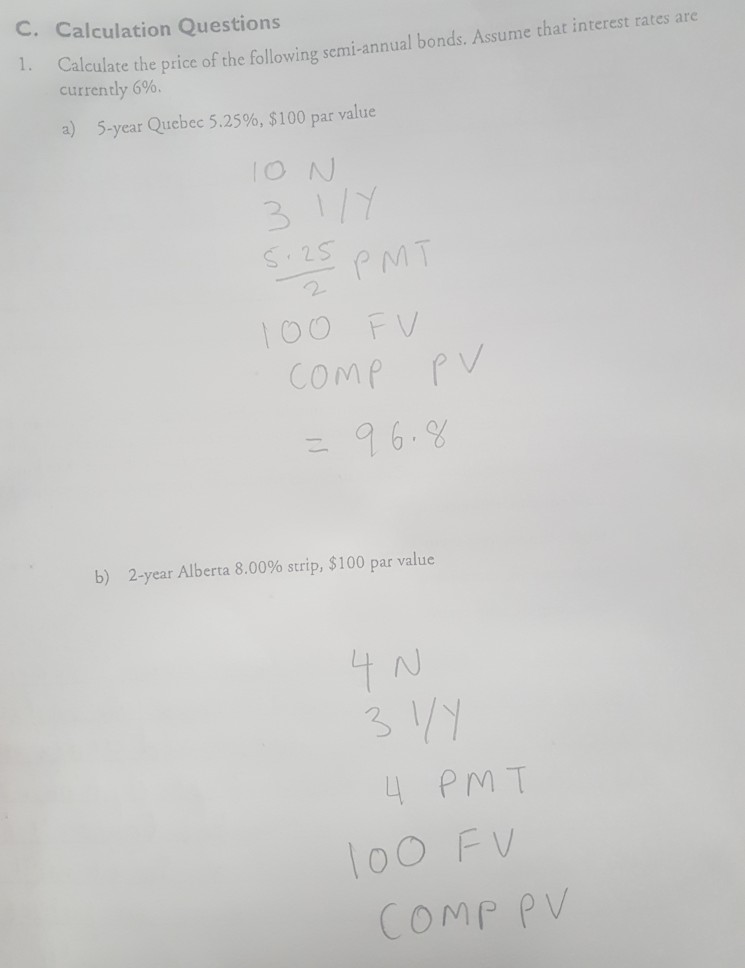 C. Calculation Questions
1. Calculate the price of the following semi-annual bonds. Assume that interest rates are
currently 6%.
a) 5-year Quebec 5.25%, $100 par value
10 N
3 I/Y
5.25
2
PMT
100 FV
COMP PV
= 96.8
b) 2-year Alberta 8.00% strip, $100 par value
4 N
3 I/Y
4 PMT
100 FV
COMP PV